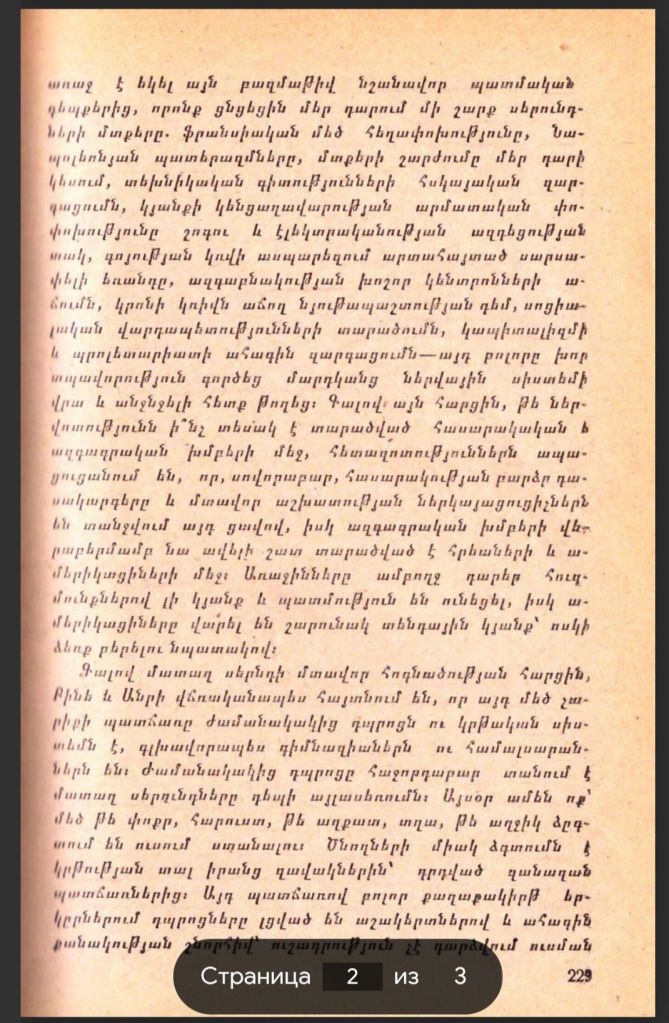 առաջ է եկել այն բազմաթիվ նշանավոր պատմական
դեպքերից, որոնք ցնցեցին մեր դարում մի շարք սերունդ-
ների մտքերը. ֆրանսիական մեծ հեղափոխությունը, Նա-
պոլեոնյան պատերազմները, մտքերի շարժումը մեր դարի
կեսում, տեխնիկական գիտությունների հսկայական զար-
գացումն, կյանքի կենցաղավարության արմատական փո-
փոխությունը շոգու և էլեկտրականության ազդեցության
տակ, գոյության կռվի ասպարեզում արտահայտած սարսա-
փելի եռանդը, ազգաբնակության խոշոր կենտրոնների ա-
ճումն, կրոնի կռիվն աճող նյութապաշտության դեմ, սոցիա-
լական վարդապետությունների տարածումն, կապիտալիզմի
և պրոլետարիատի ահագին զարգացումն—այդ բոլորը խոր
տպավորություն գործեց մարդկանց ներվային սիստեմի
վրա և անջնջելի հետք թողեց։ Գալով այն հարցին, թե ներ-
վոտությունն ի՞նչ տեսակ է տարածված հասարակական և
ազգագրական խմբերի մեջ, հետազոտություններն ապա-
ցուցանում են, որ, սովորաբար, հասարակության բարձր դա-
սակարգերը և մտավոր աշխատության ներկայացուցիչներն
են տանջվում այդ ցավով, իսկ ազգագրական խմբերի վե-
րաբերմամբ նա ավելի շատ տարածված է հրեաների և ա-
մերիկացիների մեջ։ Առաջինները ամբողջ դարեր հուզ-
մունքներով լի կյանք և պատմություն են ունեցել, իսկ ա-
մերիկացիները վարել են շարունակ տենդային կյանք՝ ոսկի
ձեռք բերելու նպատակով։
Գալով մատաղ սերնդի մտավոր հոգնածության հարցին,
Բինե և Անրի վճռականապես հայտնում են, որ այդ մեծ չա-
րիքի պատճառը ժամանակակից դպրոցն ու կրթական սիս-
տեմն է, գլխավորապես գիմնազիաներն ու համալսարան-
ներն են։ Ժամանակակից դպրոցը հաջորդաբար տանում է
մատաղ սերունդները դեպի այլասեռումն։ Այսօր ամեն ոք՝
մեծ թե փոքր, հարուստ, թե աղքատ, տղա, թե աղջիկ ձըգ-
տում են ուսում ստանալու։ Ծնողների միակ ձգտումն է
կրթության տալ իրանց զավակներին՝ դրդված զանազան
պատճառներից։ Այդ պատճառով բոլոր քաղաքակիրթ եր-
կըրներում դպրոցները լցված են աշակերտներով և ահագին
քանակության շնորհիվ՝ ուշադրություն չէ դարձվում ուսման
229
Страница 2 из 3